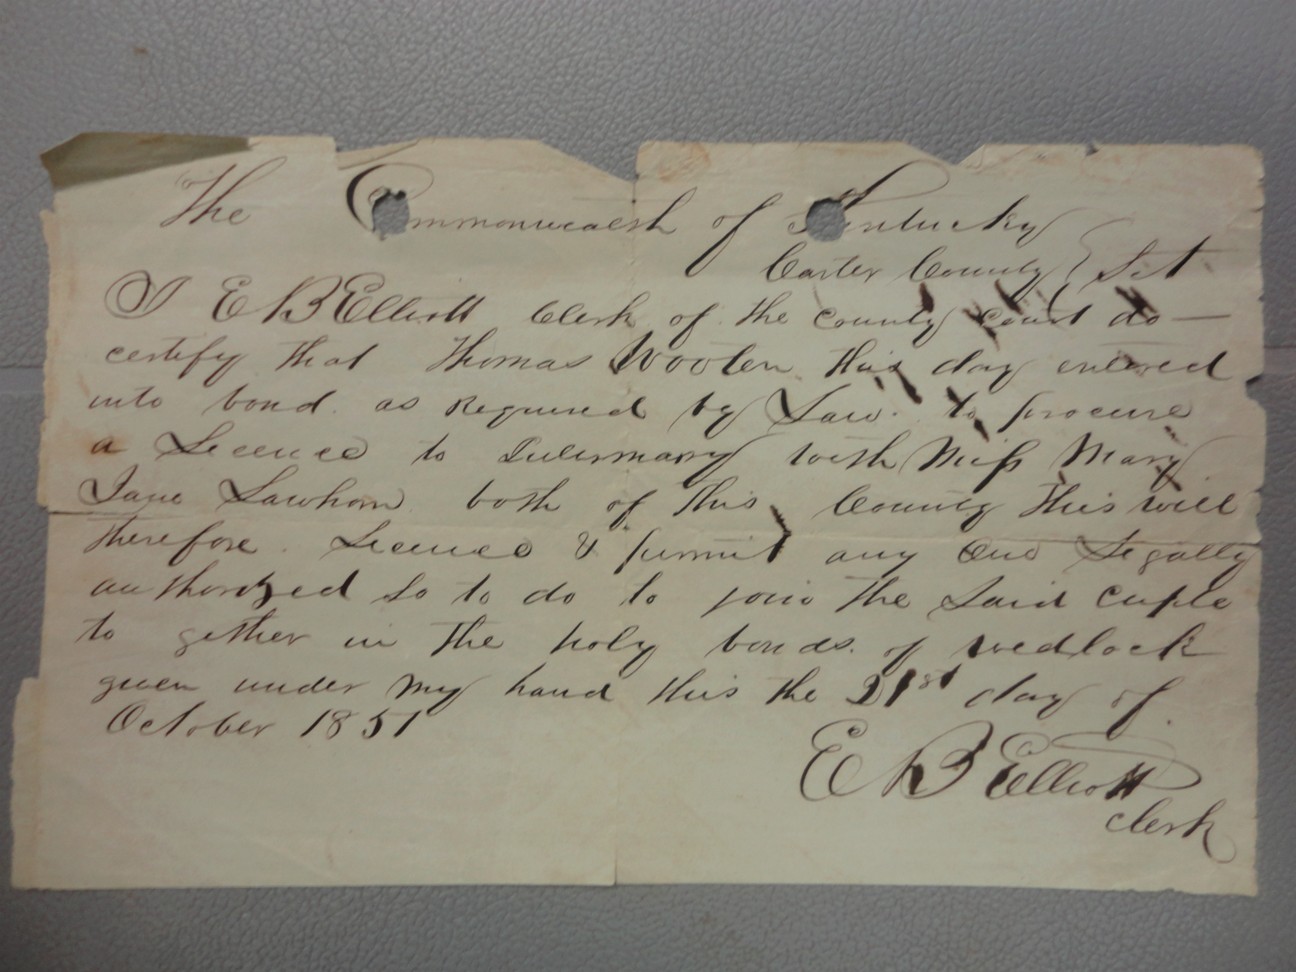 The Commonwealth of Kentucky
Carter County } Sct
I E B Elliott Clerk of the county court do —
certify that Thomas Wooten this day entered
into bond as Required by Law to procure
a Licence to Intermarry with Miss Mary
Jane Lawhorn both of this County this will
therefore Licence & permit any One Legally
authorized so to do to join the said cuple
to gether in the holy bonds of wedlock
given under my hand this the 21st day of
October 1851
E B Elliott
clerk